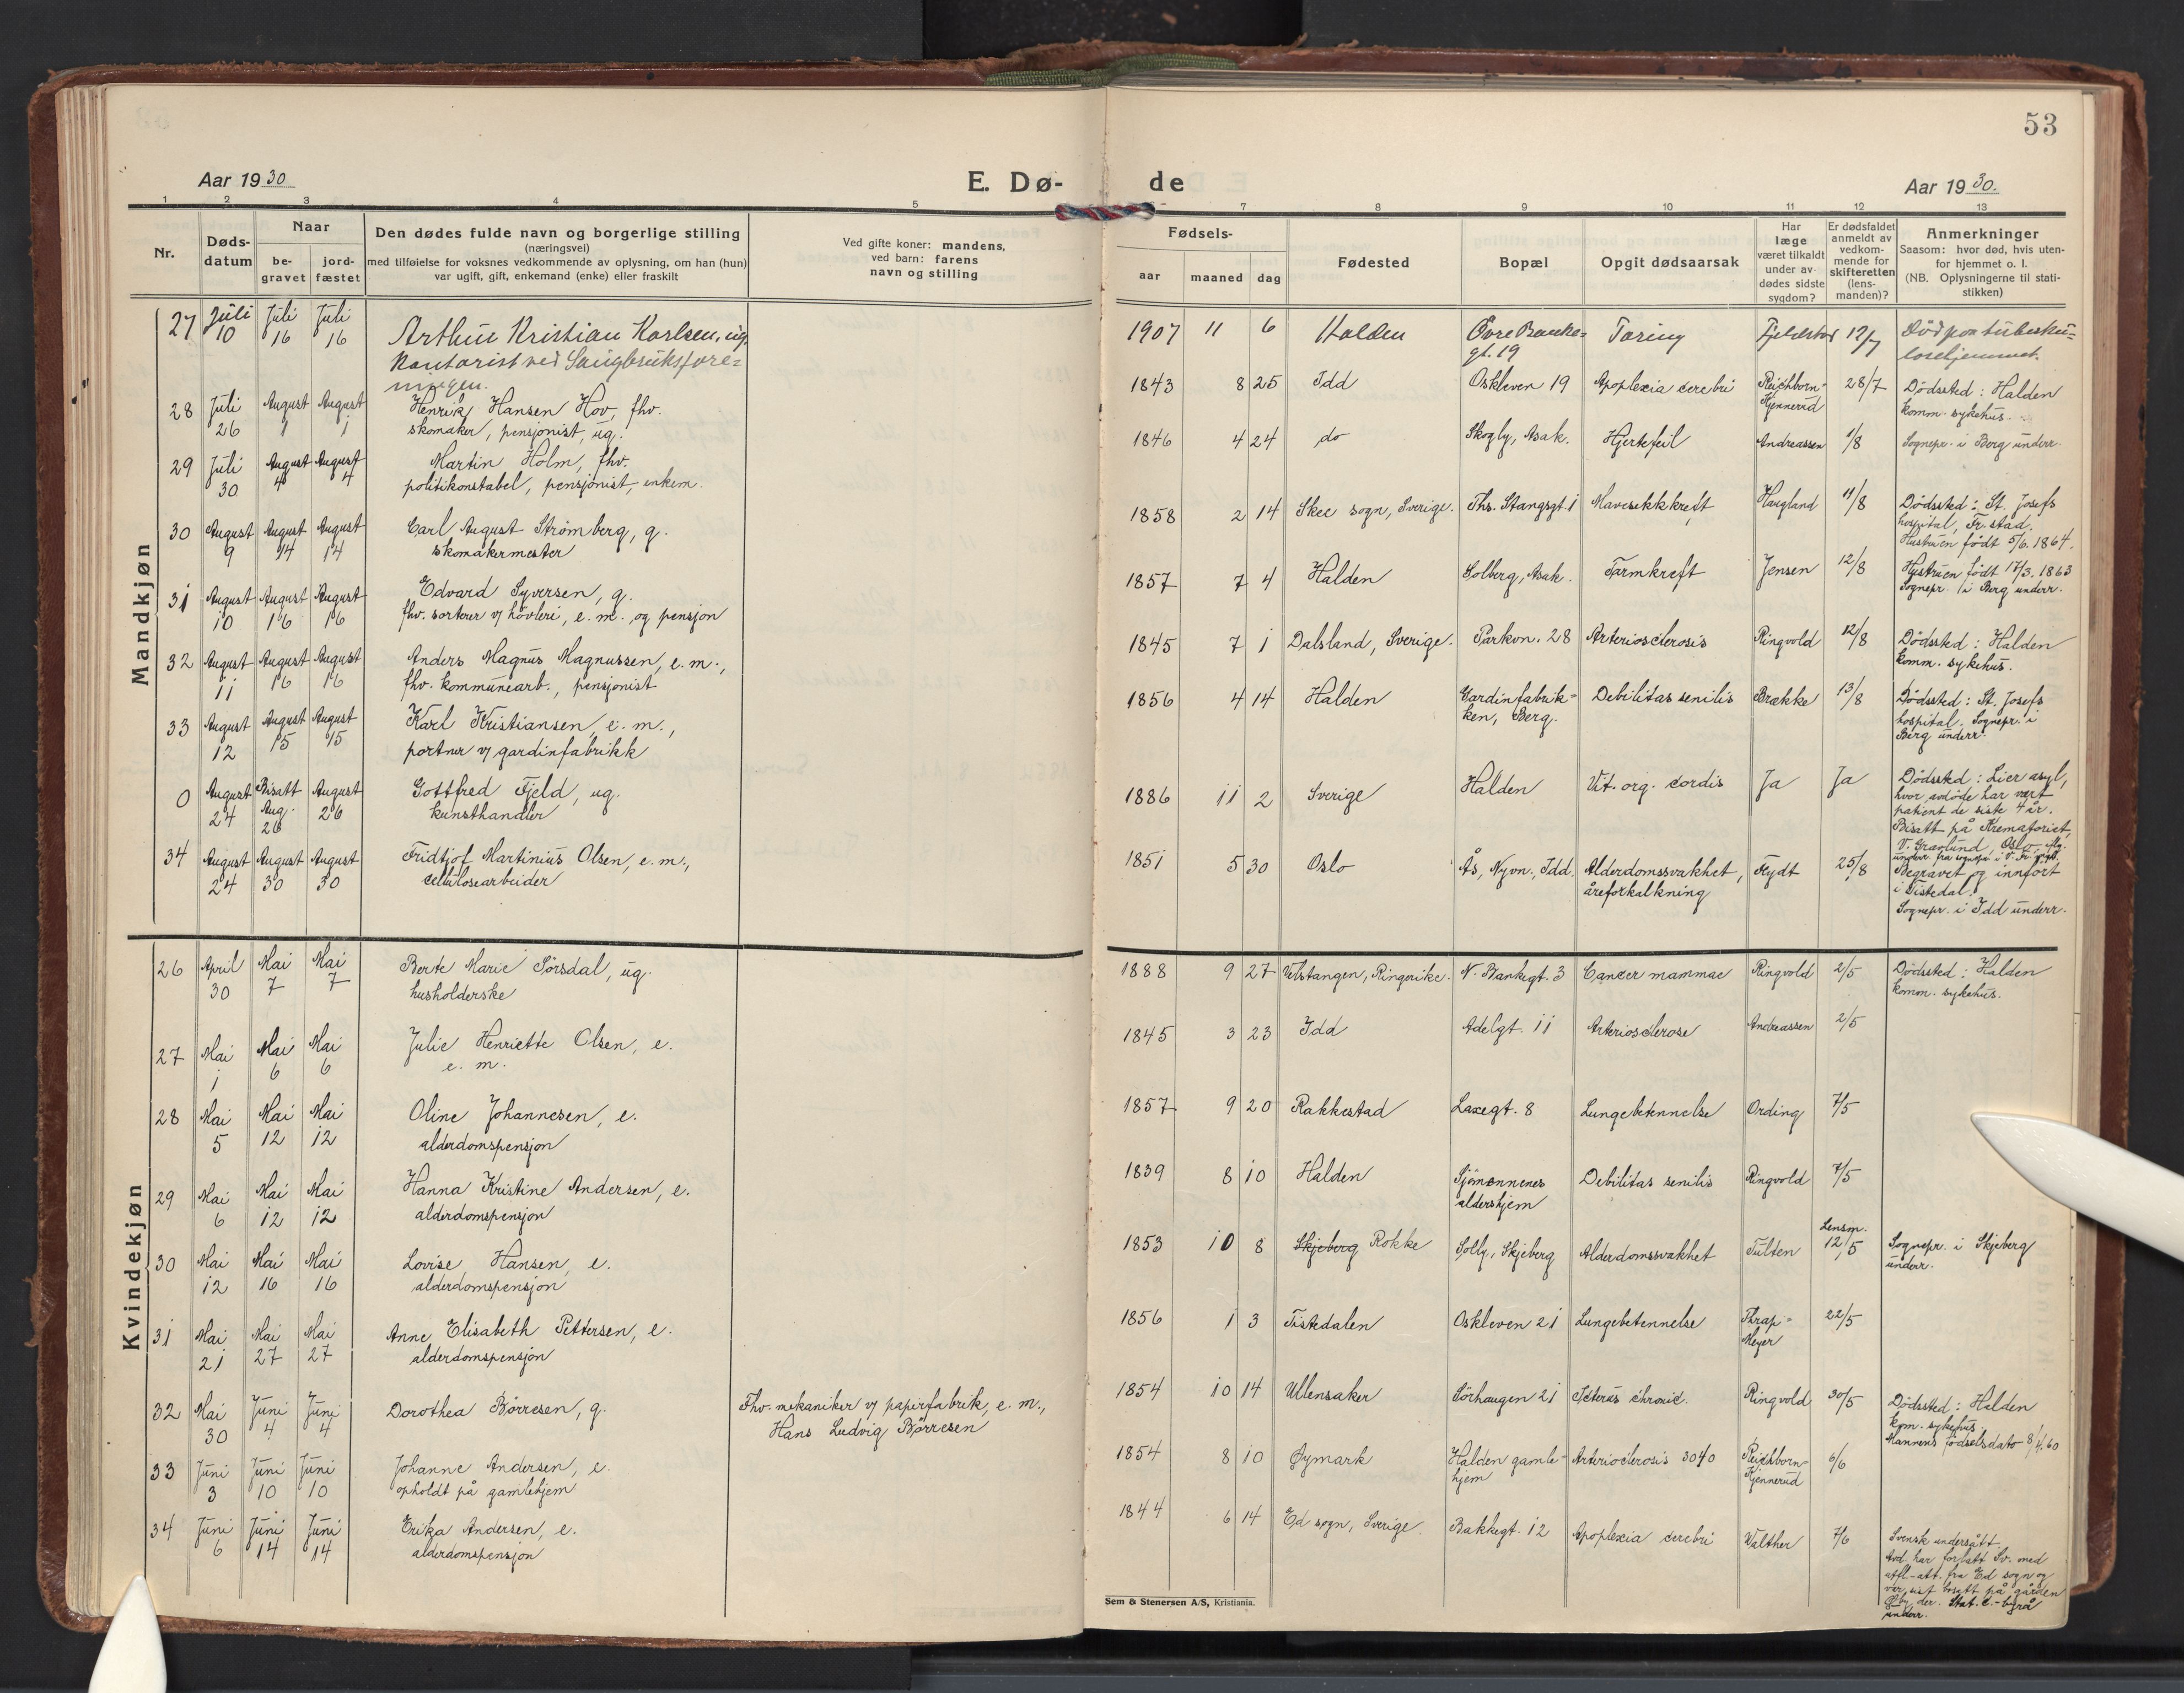 53
Aar 1930
E. Dø-
de
Aar 1930.
1 2 3 4 5
7 8 9 10 11 12 13
Nr.
Døds-
datum
Naar
be-
gravet
jord-
fæstet
Den dødes fulde navn og borgerlige stilling
(næringsvei)
med tilføielse for voksnes vedkommende av oplysning, om han (hun)
var ugift, gift, enkemand (enke) eller fraskilt
Ved gifte koner: mandens,
ved barn: farens
navn og stilling
Fødsels-
aar maaned dag
Fødested
Bopæl
Opgit dødsaarsak
Har
læge
været tilkaldt
under av-
dødes sidste
sygdom?
Er dødsfaldet
anmeldt av
vedkom-
mende for
skifteretten
(lens-
manden)?
Anmerkninger
Saasom: hvor død, hvis uten-
for hjemmet o. l.
(NB. Oplysningerne til stati-
stikken)
Mandkjøn
27 Juli 10 Juli 16 Juli 16
Arthur Kristian Karlsen, ug.
Kontorist ved Saugbruksfore-
ningen.
1907 11 6 Halden
Øvre Banke-
gt. 19
Tæring
12/7
Død paa tuberku-
losehjemmet.
28 Juli 26 August 1 August 1
Henrik Hansen Hov, fhv.
skomaker, pensjonist, ug.
1843 8 25 Idd Oskleven 19 Apoplexia cerebri
Reichborn-
Kjennerud
28/7
Dödssted: Halden
komm. sykehus.
29 Juli 30 August 4 August 4
Martin Holm, fhv.
politikonstabel, pensjonist, enkem.
1846 4 24 do Skogly, Asak. Hjertefeil Andreassen 1/8
Sognepr. i Berg underr.
30 August 9 August 14 August 14
Carl August Strömberg, g.
skomakermester
1858 2 14 Skee sogn, Sverige. Ths. Stangsgt. 1 Mavesekkkreft Haugland 11/8
Dödssted: St. Josefs
hospital, Fr.stad.
Hustruen födt 5/6. 1864.
31 August 10 August 16 August 16
Edvard Syversen, g.
fhv. sorterer v/ hövleri, e. m. og pensjon
1857 7 4 Halden Solberg, Asak. Tarmkreft Jensen 12/8
Hustruen födt 17/3. 1863
Sognepr. i Berg underr.
32 August 11 August 16 August 16
Anders Magnus Magnussen, e. m.,
fhv. kommunearb., pensjonist
1845 7 1 Dalsland, Sverige. Parkvn. 28 Arteriosclerosis Ringvold 12/8
Dödssted: Halden
komm. sykehus.
33 August 12 August 15 August 15
Karl Kristiansen, e. m.,
portner v/ gardinfabrikk
1856 4 14 Halden
Gardinfabrik-
ken, Berg.
Debilitas senilis Brække 13/8
Dödssted: St. Josefs
hospital. Sognepr. i
Berg underr.
0 August 24 Bisatt Aug. 26 August 26
Gottfred Fjeld, ug.
kunsthandler
1886 11 2 Sverige Halden Vit. org. cordis Ja Ja
Dödssted: Lier asyl,
hvor avdöde har vært
patient de siste 4 år.
Bisatt på Krematoriet,
V. Gravlund, Oslo,
34 August 24 August 30 August 30
Fridtjof Martinius Olsen, e. m.,
cellulosearbeider
1851 5 30 Oslo Ås, Nyvn., Idd.
Alderdomssvakhet,
åreforkalkning
Flydt 25/8
Begravet og innfört
i Tistedal.
Sognepr. i Idd underr.
Kvindekjøn
26 April 30 Mai 7 Mai 7
Berte Marie Sørsdal, ug.
husholderske
1888 9 27 Ulstangen, Ringerike. N. Bankegt. 3 Cancer mammae Ringvold 2/5
Dödssted: Halden
komm. sykehus.
27 Mai 1 Mai 6 Mai 6
Julie Henriette Olsen, e.
e. m.
1845 3 23 Idd Adelgt. 11 Arteriosclerose Andreassen 2/5
28 Mai 5 Mai 12 Mai 12
Oline Johannesen, e.
alderdomspensjon
1857 9 20 Rakkestad Laxegt. 8 Lungebetennelse Ording 7/5
29 Mai 6 Mai 12 Mai 12
Hanna Kristine Andersen, e.
alderdomspensjon
1839 8 10 Halden
Sjömennenes
aldershjem
Debilitas senilis Ringvold 7/5
30 Mai 12 Mai 16 Mai 16
Lovise Hansen, e.
alderdomspensjon
1853 10 8 Skjeberg Rokke Solly, Skjeberg Alderdomssvakhet Tulten
Lensm.
12/5
Sognepr. i Skjeberg
underr.
31 Mai 21 Mai 27 Mai 27
Anne Elisabeth Pettersen, e.
alderdomspensjon
1856 1 3 Tistedalen Oskleven 21 Lungebetennelse
Thrap-
Meyer
22/5
32 Mai 30 Juni 4 Juni 4
Dorothea Børresen, g.
Fhv. mekaniker v/ papirfabrik, e. m.,
Hans Ludvig Børresen
1854 10 14 Ullensaker Sörhaugen 21 Icterus chronic. Ringvold 30/5
Dödssted: Halden
kom. sykehus.
Mannens fødselsdato 8/4. 60
33 Juni 3 Juni 10 Juni 10
Johanne Andersen, e.
opholdt på gamlehjem
1854 8 10 Øymark
Halden gamle-
hjem
Arteriosclerosis
Reichborn-
Kjennerud
6/6
34 Juni 6 Juni 14 Juni 14
Erika Andersen, e.
alderdomspensjon
1844 6 14 Ed sogn, Sverige. Bakkegt. 12 Apoplexia cerebri Walther 7/6
Svensk undersått.
Avd. har forlatt Sv. med
utfl.-att. fra Ed sogn og
var sist bosatt på gården
der. Stat. C.-byrå
underr.
Sem & Stenersen A/S, Kristiania.